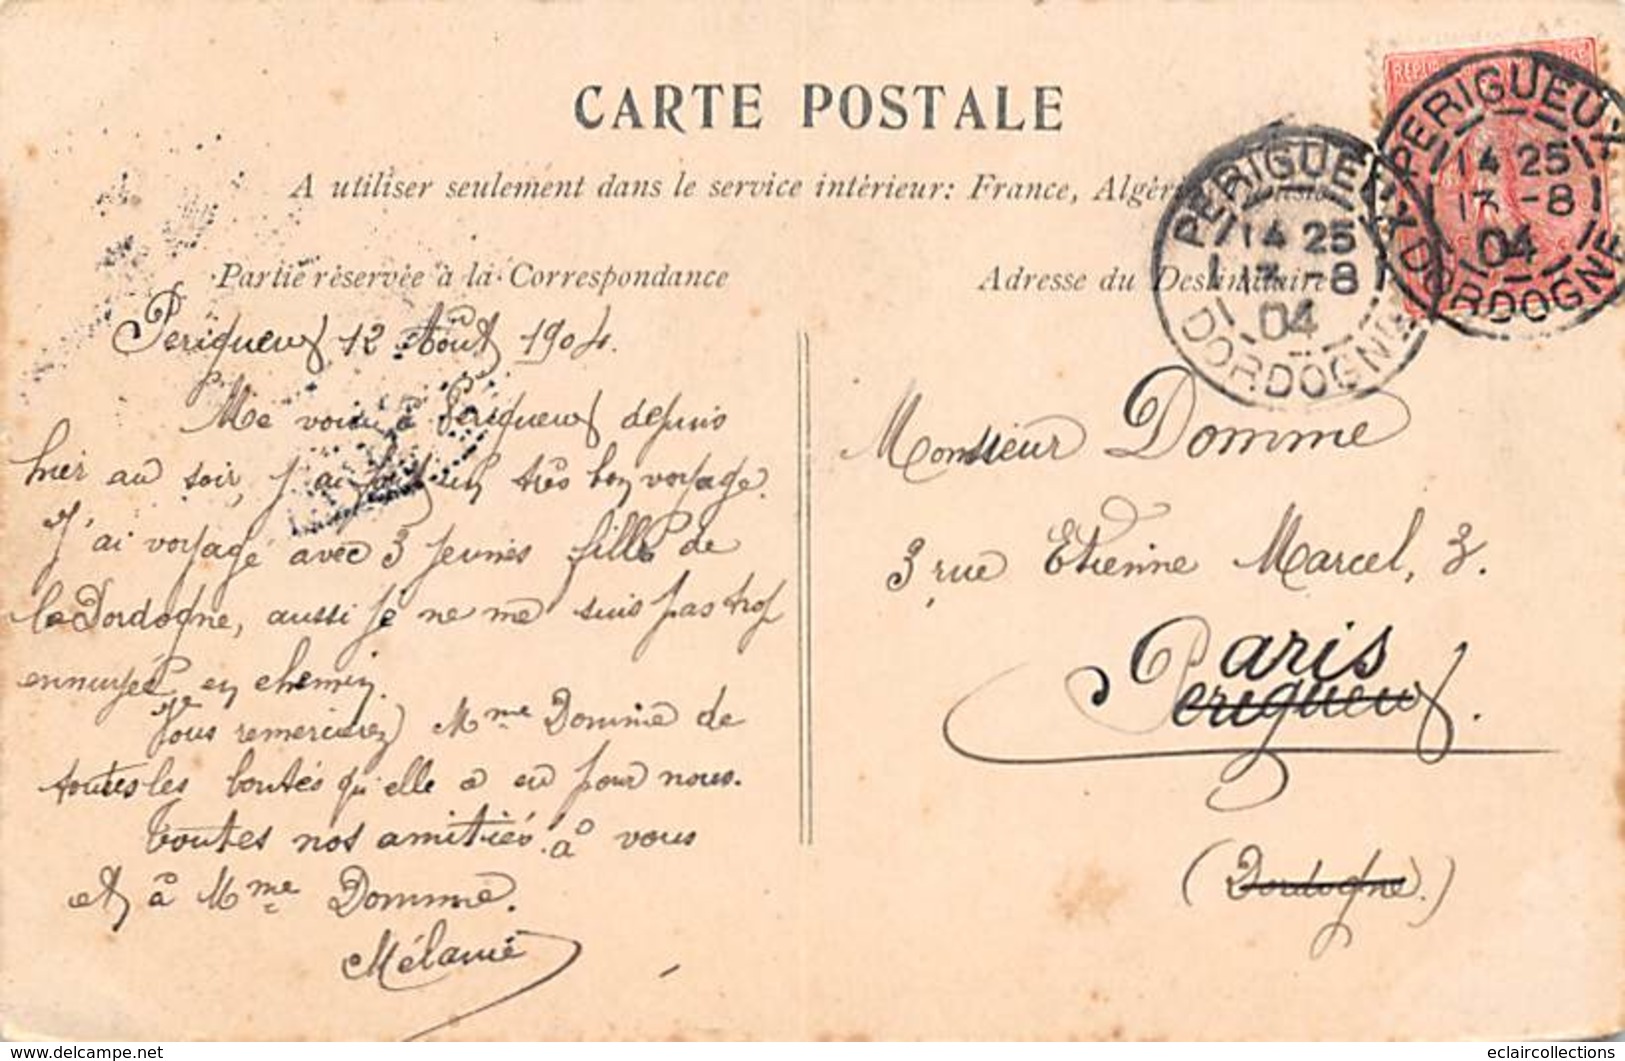 CARTE POSTALE
A utiliser seulement dans le service intérieur: France, Algérie
Partie réservée à la Correspondance
Adresse du Destinataire
RÉPU
PERIGUEUX
14 25
13 -8
04
DORDOGNE
PERIGUEUX
14 25
13 -8
04
DORDOGNE
Perigueux 12 Août 1904.
Me voici à Perigueux depuis
hier au soir, j'ai fait un très bon voyage.
J'ai voyagé avec 3 jeunes filles de
la Dordogne, aussi je ne me suis pas trop
ennuyée en chemin.
Vous remercierez Mme Domme de
toutes les bontés qu'elle a eu pour nous.
Toutes nos amitiés à vous
et à Mme Domme.
Mélanie
Monsieur Domme
3 rue Etienne Marcel, 3.
Paris
Perigueux.
(Dordogne.)
eclaircollections